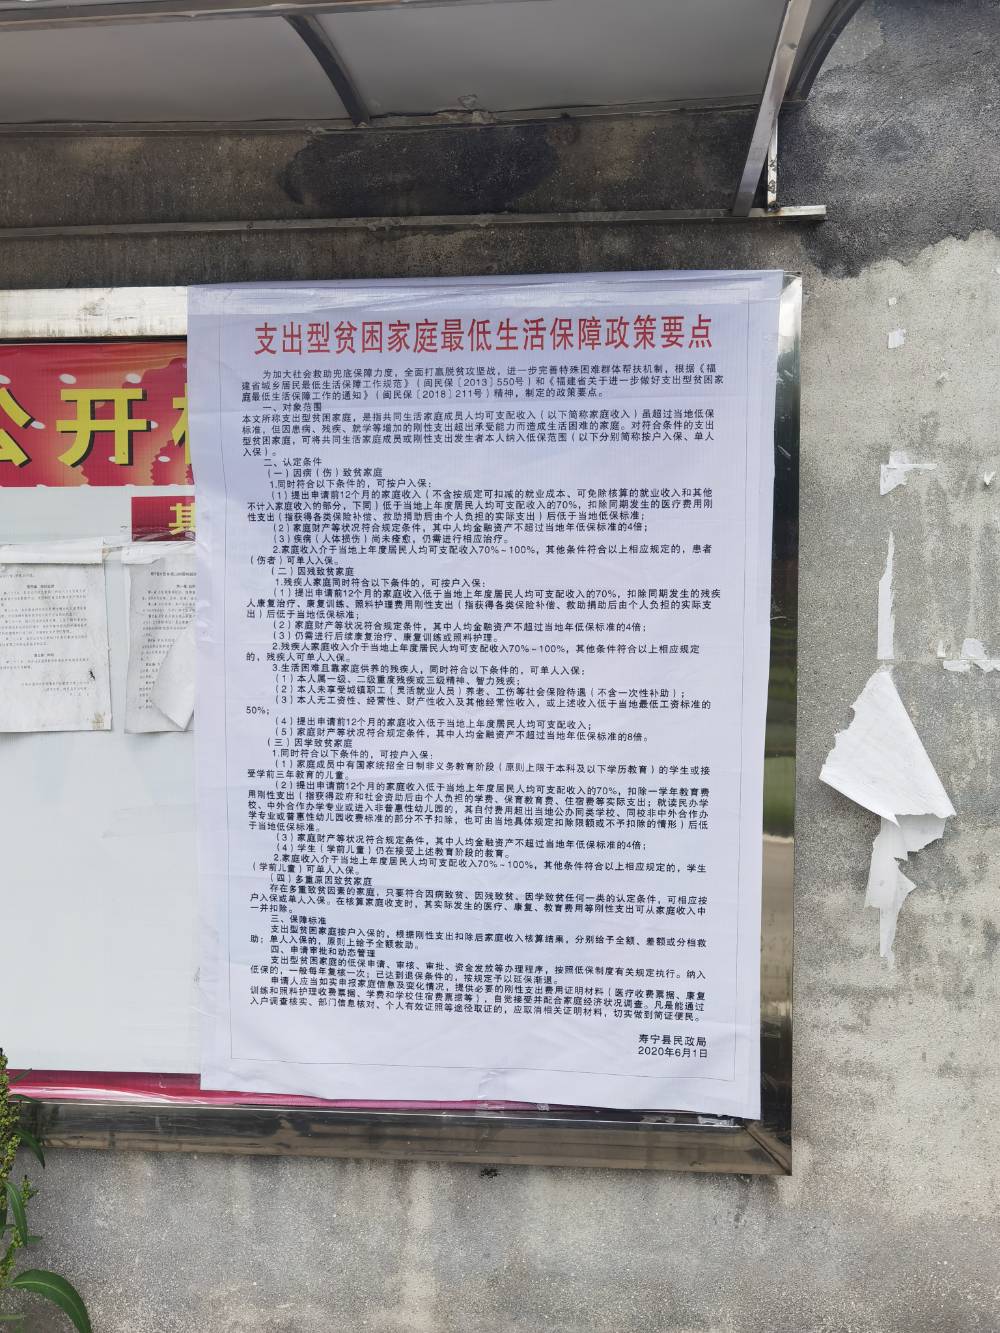 支出型贫困家庭最低生活保障政策要点
为加大社会救助兜底保障力度，全面打赢脱贫攻坚战，进一步完善特殊困难群体帮扶机制，根据《福
建省城乡居民最低生活保障工作规范》（闽民保〔2013〕550号）和《福建省关于进一步做好支出型贫困家
庭最低生活保障工作的通知》（闽民保〔2018〕211号）精神，制定的政策要点。
一、对象范围
本文所称支出型贫困家庭，是指共同生活家庭成员人均可支配收入（以下简称家庭收入）虽超过当地低保
标准，但因患病、残疾、就学等增加的刚性支出超出承受能力而造成生活困难的家庭。对符合条件的支出
型贫困家庭，可将共同生活家庭成员或刚性支出发生者本人纳入低保范围（以下分别简称按户入保、单人
入保）。
二、认定条件
（一）因病（伤）致贫家庭
1.同时符合以下条件的，可按户入保：
（1）提出申请前12个月的家庭收入（不含按规定可扣减的就业成本、可免除核算的就业收入和其他
不计入家庭收入的部分，下同）低于当地上年度居民人均可支配收入的70%，扣除同期发生的医疗费用刚
性支出（指获得各类保险补偿、救助捐助后由个人负担的实际支出）后低于当地低保标准；
（2）家庭财产等状况符合规定条件，其中人均金融资产不超过当地年低保标准的4倍；
（3）疾病（人体损伤）尚未痊愈，仍需进行相应治疗。
2.家庭收入介于当地上年度居民人均可支配收入70%~100%，其他条件符合以上相应规定的，患者
（伤者）可单人入保。
（二）因残致贫家庭
1.残疾人家庭同时符合以下条件的，可按户入保：
（1）提出申请前12个月的家庭收入低于当地上年度居民人均可支配收入的70%，扣除同期发生的残疾
人康复治疗、康复训练、照料护理费用刚性支出（指获得各类保险补偿、救助捐助后由个人负担的实际支
出）后低于当地低保标准；
（2）家庭财产等状况符合规定条件，其中人均金融资产不超过当地年低保标准的4倍；
（3）仍需进行后续康复治疗、康复训练或照料护理。
2.残疾人家庭收入介于当地上年度居民人均可支配收入70%~100%，其他条件符合以上相应规定
的，残疾人可单人入保。
3.生活困难且靠家庭供养的残疾人，同时符合以下条件的，可单人入保：
（1）本人属一级、二级重度残疾或三级精神、智力残疾；
（2）本人未享受城镇职工（灵活就业人员）养老、工伤等社会保险待遇（不含一次性补助）；
（3）本人无工资性、经营性、财产性收入及其他经常性收入，或上述收入低于当地最低工资标准的
50%；
（4）提出申请前12个月的家庭收入低于当地上年度居民人均可支配收入；
（5）家庭财产等状况符合规定条件，其中人均金融资产不超过当地年低保标准的8倍。
（三）因学致贫家庭
1.同时符合以下条件的，可按户入保：
（1）家庭成员中有国家统招全日制非义务教育阶段（原则上限于本科及以下学历教育）的学生或接
受学前三年教育的儿童。
（2）提出申请前12个月的家庭收入低于当地上年度居民人均可支配收入的70%，扣除一学年教育费
用刚性支出（指获得政府和社会资助后由个人负担的学费、保育教育费、住宿费等实际支出；就读民办学
校、中外合作办学专业或进入非普惠性幼儿园的，其自付费用超出当地公办同类学校、同校非中外合作办
学专业或普惠性幼儿园收费标准的部分不予扣除，也可由当地具体规定扣除限额或不予扣除的情形）后低
于当地低保标准。
（3）家庭财产等状况符合规定条件，其中人均金融资产不超过当地年低保标准的4倍；
（4）学生（学前儿童）仍在接受上述教育阶段的教育。
2.家庭收入介于当地上年度居民人均可支配收入70%~100%，其他条件符合以上相应规定的，学生
（学前儿童）可单人入保。
（四）多重原因致贫家庭
存在多重致贫因素的家庭，只要符合因病致贫、因残致贫、因学致贫任何一类的认定条件，可相应按
户入保或单人入保。在核算家庭收支时，其实际发生的医疗、康复、教育费用等刚性支出可从家庭收入中
一并扣除。
三、保障标准
支出型贫困家庭按户入保的，根据刚性支出扣除后家庭收入核算结果，分别给予全额、差额或分档救
助；单人入保的，原则上给予全额救助。
四、申请审批和动态管理
支出型贫困家庭的低保申请、审核、审批、资金发放等办理程序，按照低保制度有关规定执行。纳入
低保的，一般每年复核一次；已达到退保条件的，按规定予以延保渐退。
申请人应当如实申报家庭信息及变化情况，提供必要的刚性支出费用证明材料（医疗收费票据、康复
训练和照料护理收费票据、学费和学校住宿费票据等），自觉接受并配合家庭经济状况调查。凡是能通过
入户调查核实、部门信息核对、个人有效证照等途径取证的，应取消相关证明材料，切实做到简证便民。
寿宁县民政局
2020年6月1日
公开